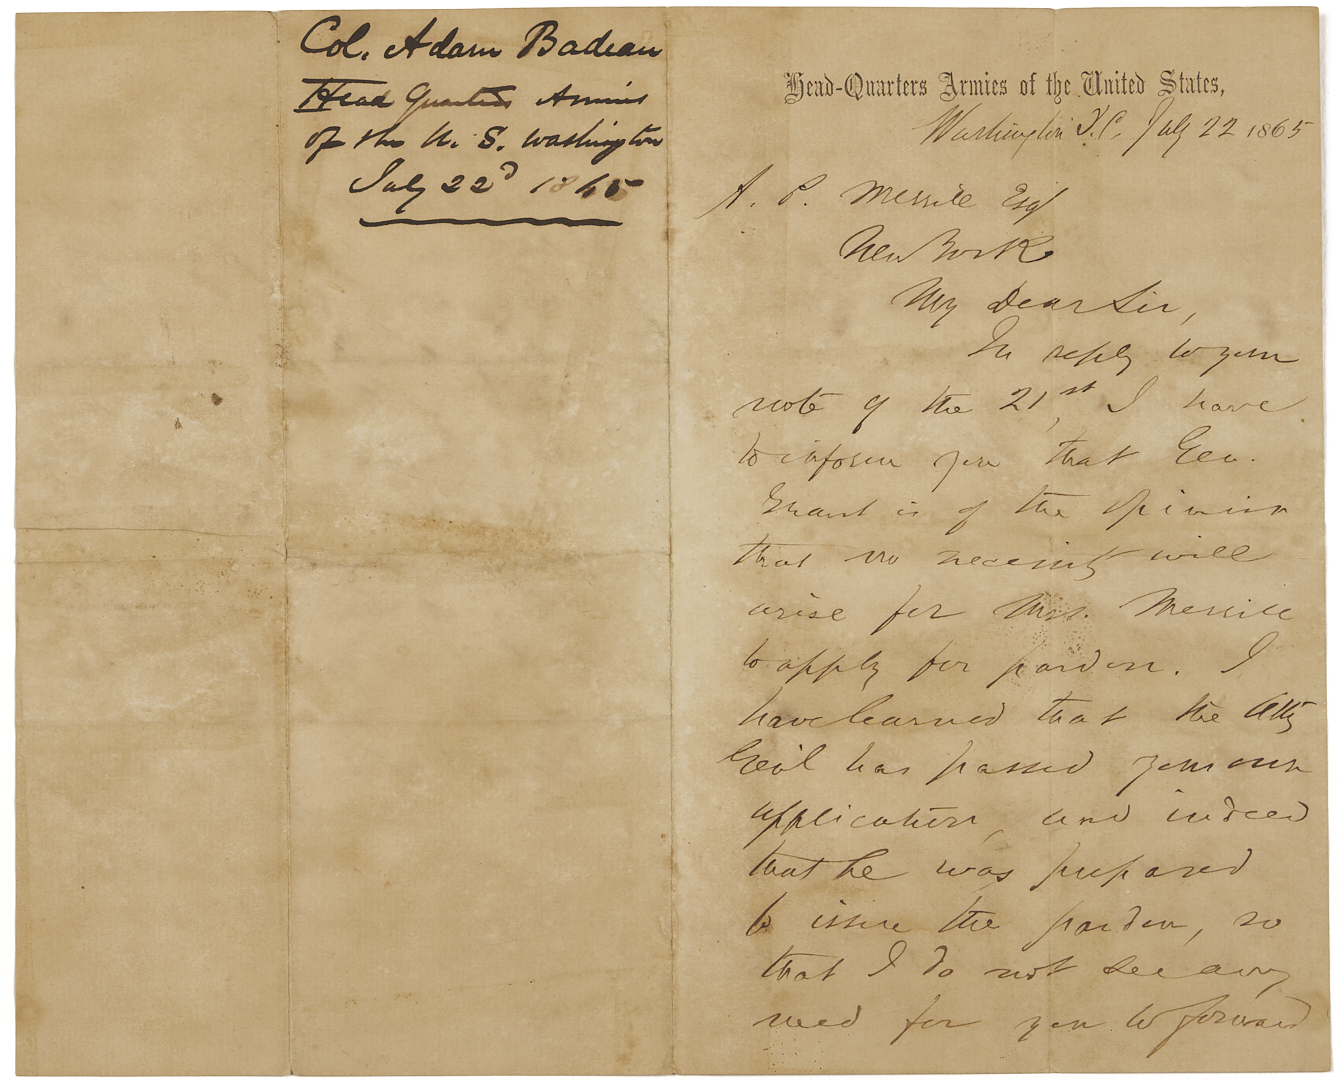 Col. Adam Badeau
Head Quarters Armies
of the U. S. Washington
July 22d 1865
Head-Quarters Armies of the United States,
Washington D.C. July 22 1865
A. P. Merrill Esq
New York
My Dear Sir,
In reply to your
note of the 21st, I have
to inform you that Gen.
Grant is of the opinion
that no necessity will
arise for Mrs. Merrill
to apply for pardon. I
have learned that the Atty
Genl has passed your own
application, and indeed
that he was prepared
to issue the pardon, so
that I do not see any
need for you to forward